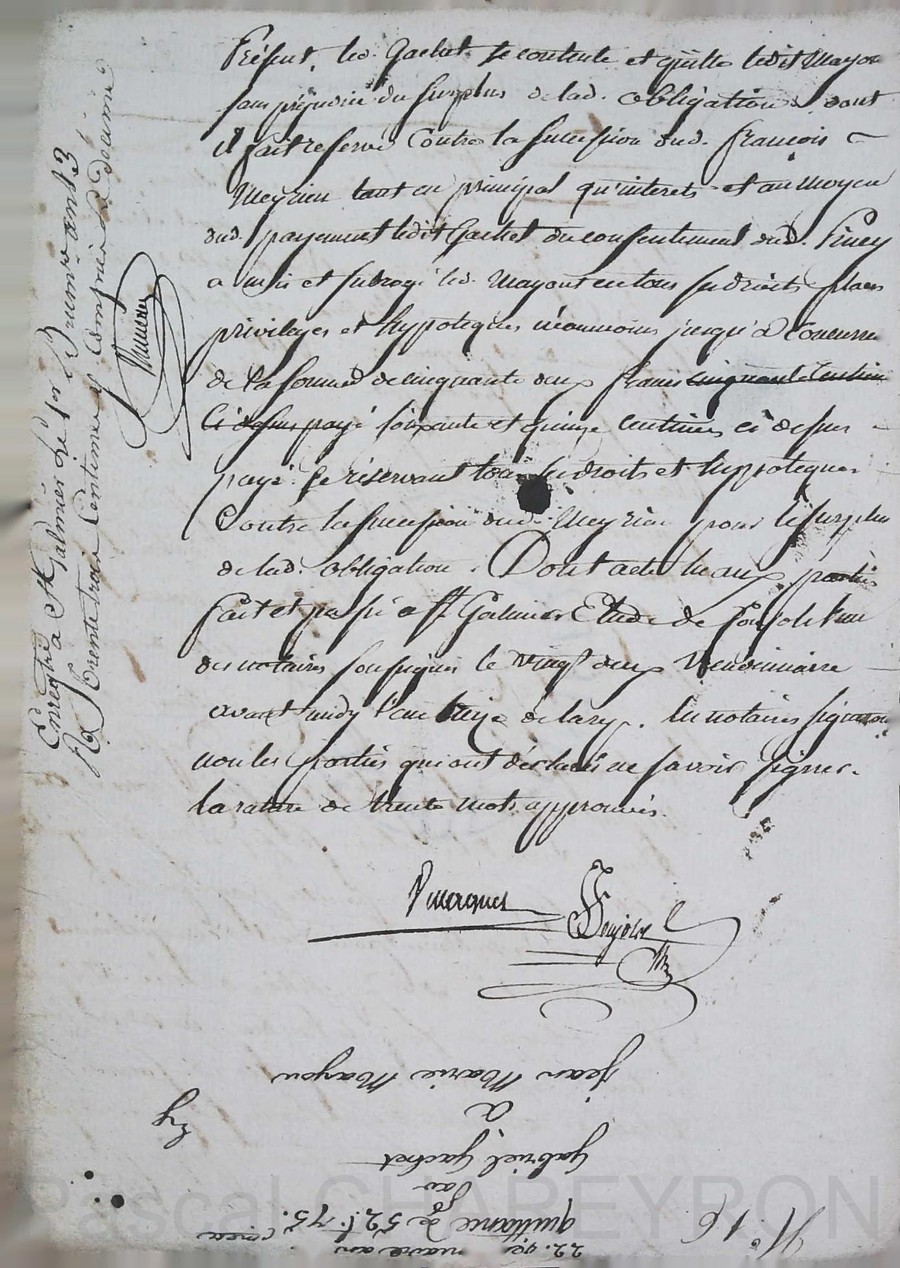 Présent, led. Gachet se contente et quitte ledit Mayou
sans préjudice du surplus de lad. obligation dont
il fait réserve Contre la succession dud. françois
Meyrieu tant en principal qu'interets et au moyen
dud. payement ledit Gachet du consentement dud.
a mis et subrogé led. Mayou en tous ses droits places
privileges et hypoteques néanmoins jusqu'a Concurre
de la somme de cinquante deux francs cinquante Centime
Ci dessus payé soixante et quinze Centimes ci dessus
payé. se réservant tous ses droits et hyppoteques
Contre la succession dud. Meyrieu pour le surplus
de lad. obligation. Dont acte
fait et passé a St Galmier Etude de l'un
des notaires soussignés le vingt deux Vendemiaire
avant midy l'an de la rep. les notaires signeront
non les parties qui ont déclaré ne savoir signer.
la rature de trente mots approuvés.
Ponjolet
Enregtré a St Galmier le 1er Brumre an 3
Ro trente trois Centimes y Compris le décime
22. vendemiaire an
quittance de 52f. 75c.
par
Gabriel Gachet
a
jean Marie Mayou
No 16
Pascal CHAPEYRON